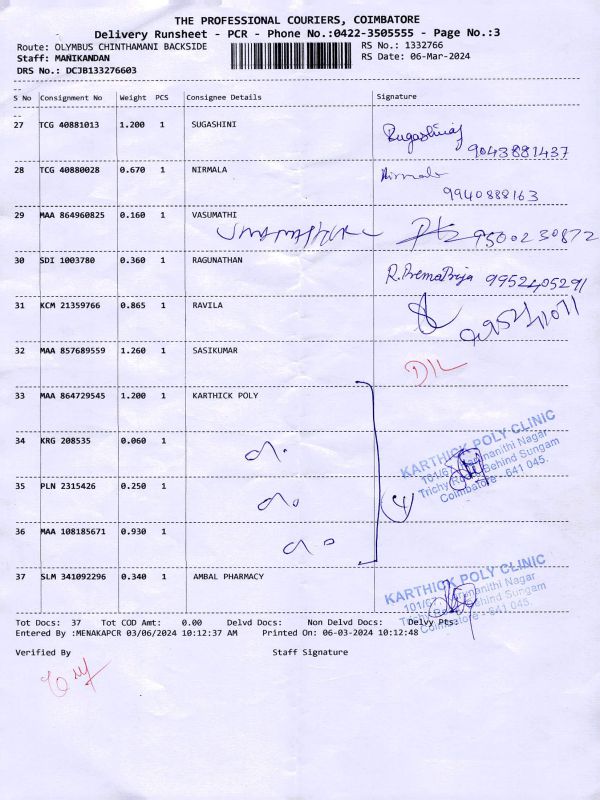 THE PROFESSIONAL COURIERS, COIMBATORE
Delivery Runsheet - PCR - Phone No.:0422-3505555 - Page No.:3
Route: OLYMBUS CHINTHAMANI BACKSIDE RS No.: 1332766
Staff: MANIKANDAN RS Date: 06-Mar-2024
DRS No.: DCJB133276603
S No Consignment No Weight PCS Consignee Details Signature
27 TCG 40881013 1.200 1 SUGASHINI
9043881437
28 TCG 40880028 0.670 1 NIRMALA Nirmala
9940888163
29 MAA 864960825 0.160 1 VASUMATHI
9500230872
30 SDI 1003780 0.360 1 RAGUNATHAN
R.PremaPriya 9952405291
31 KCM 21359766 0.865 1 RAVILA
32 MAA 857689559 1.260 1 SASIKUMAR
D/L
33 MAA 864729545 1.200 1 KARTHICK POLY
34 KRG 208535 0.060 1
KARTHICK POLY CLINIC
Trichy Behind Sungam
Coimbatore - 641 045.
35 PLN 2315426 0.250 1
4
36 MAA 108185671 0.930 1
37 SLM 341092296 0.340 1 AMBAL PHARMACY
KARTHICK POLY CLINIC
Sungam
Coimbatore - 641 045.
Tot Docs: 37 Tot COD Amt: 0.00 Delvd Docs: Non Delvd Docs: Delvy Pts:
Entered By :MENAKAPCR 03/06/2024 10:12:37 AM Printed On: 06-03-2024 10:12:48
Verified By Staff Signature